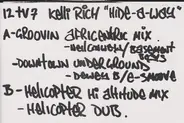 12-TV7 Kelli Rich "Hide-A-Way"
A-Groovin Africentric Mix
- Helicautty/Basement Boys
- Downtown Underground
- Dewey B/E-Smoove
B- Helicopter Hi Attitude Mix
- Helicopter Dub.